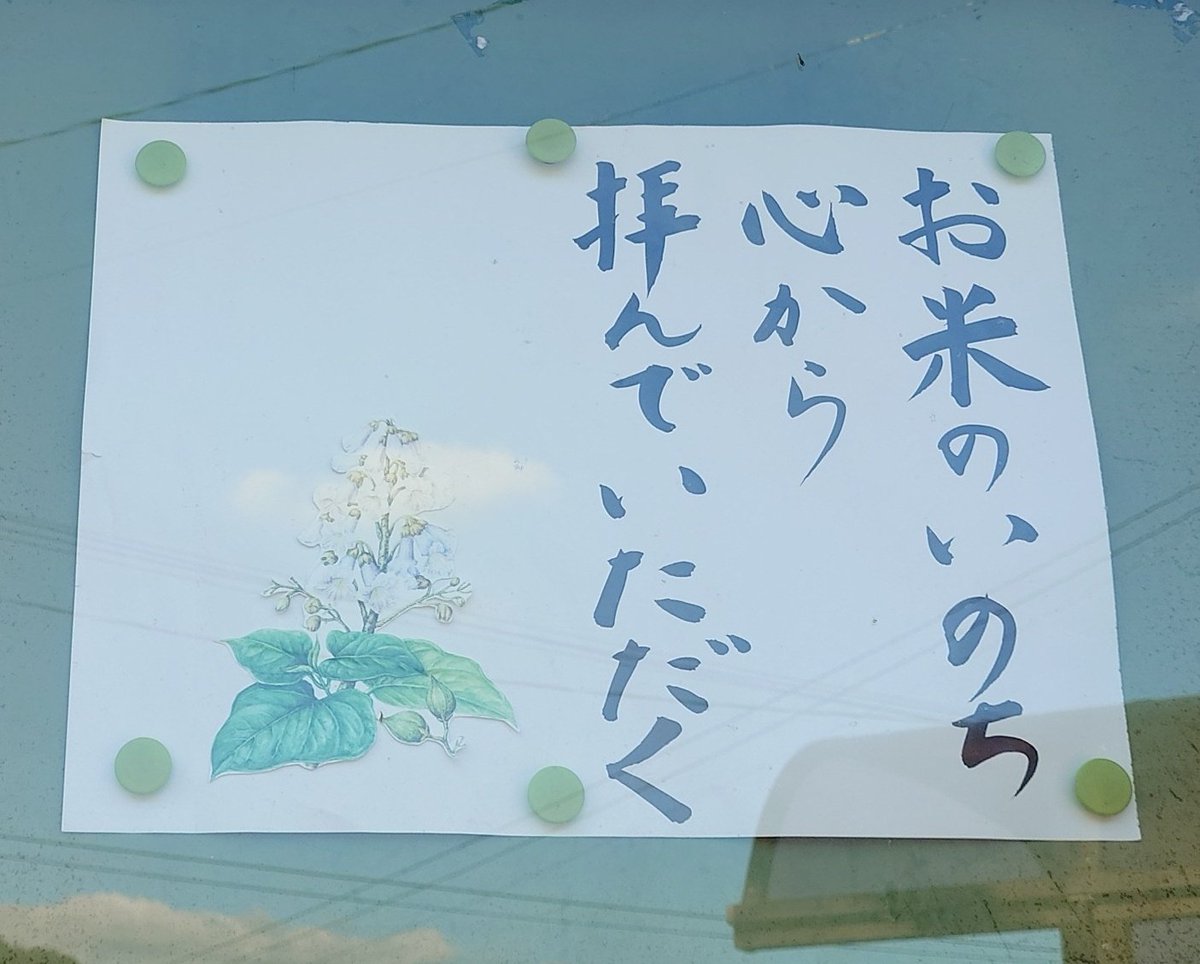 お米のいのち
心から
拝んでいただく